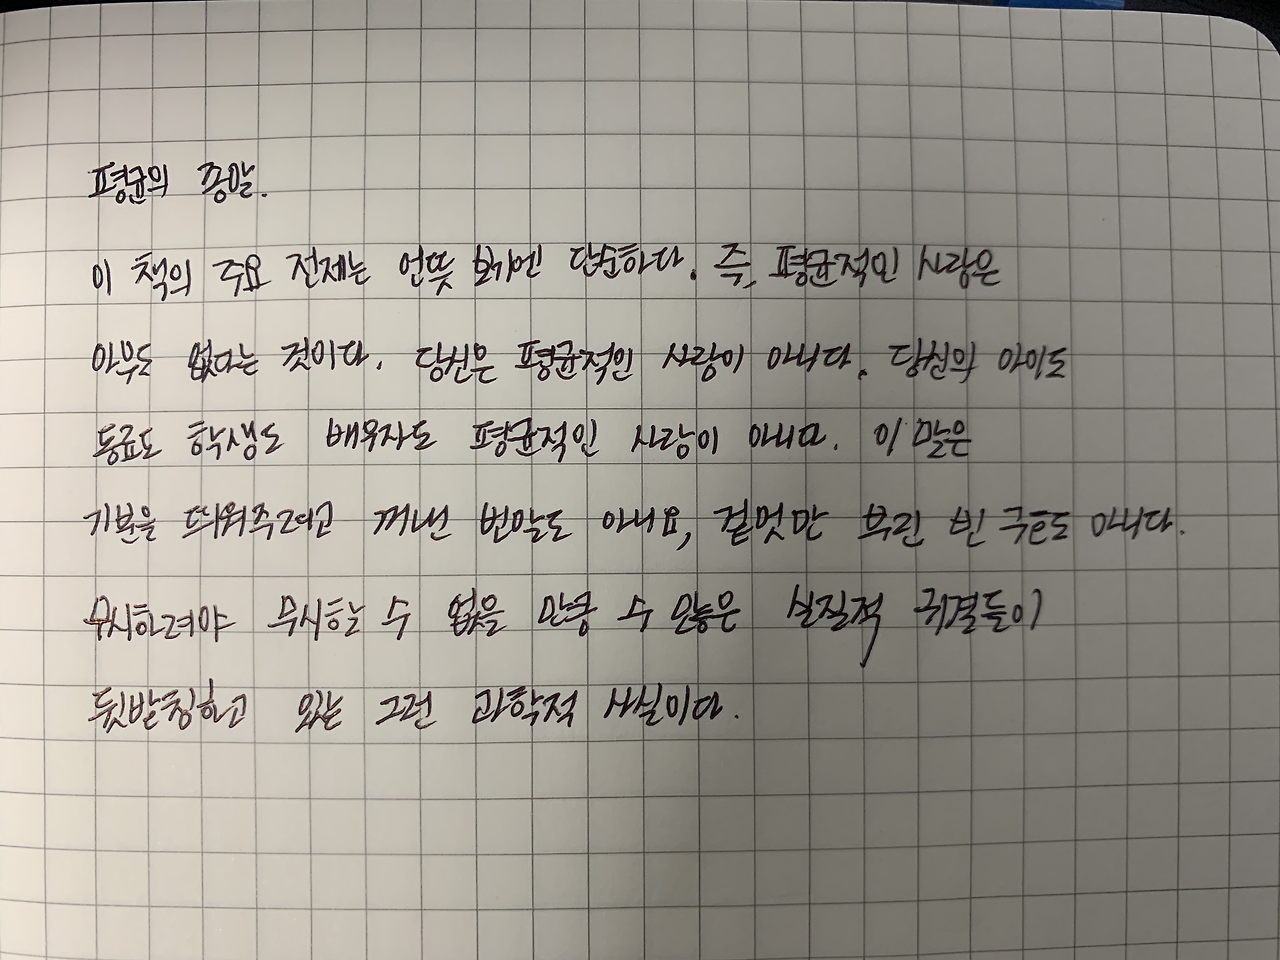 평균의 종말.
이 책의 주요 전제는 언뜻 보기엔 단순하다. 즉, 평균적인 사람은
아무도 없다는 것이다. 당신은 평균적인 사람이 아니다. 당신의 아이도
동료도 학생도 배우자도 평균적인 사람이 아니다. 이 말은
기분을 띄워주려고 꺼낸 빈말도 아니요, 겉멋만 부린 빈 구호도 아니다.
무시하려야 무시할 수 없을 만큼 수 많은 실질적 귀결들이
뒷받침하고 있는 그런 과학적 사실이다.